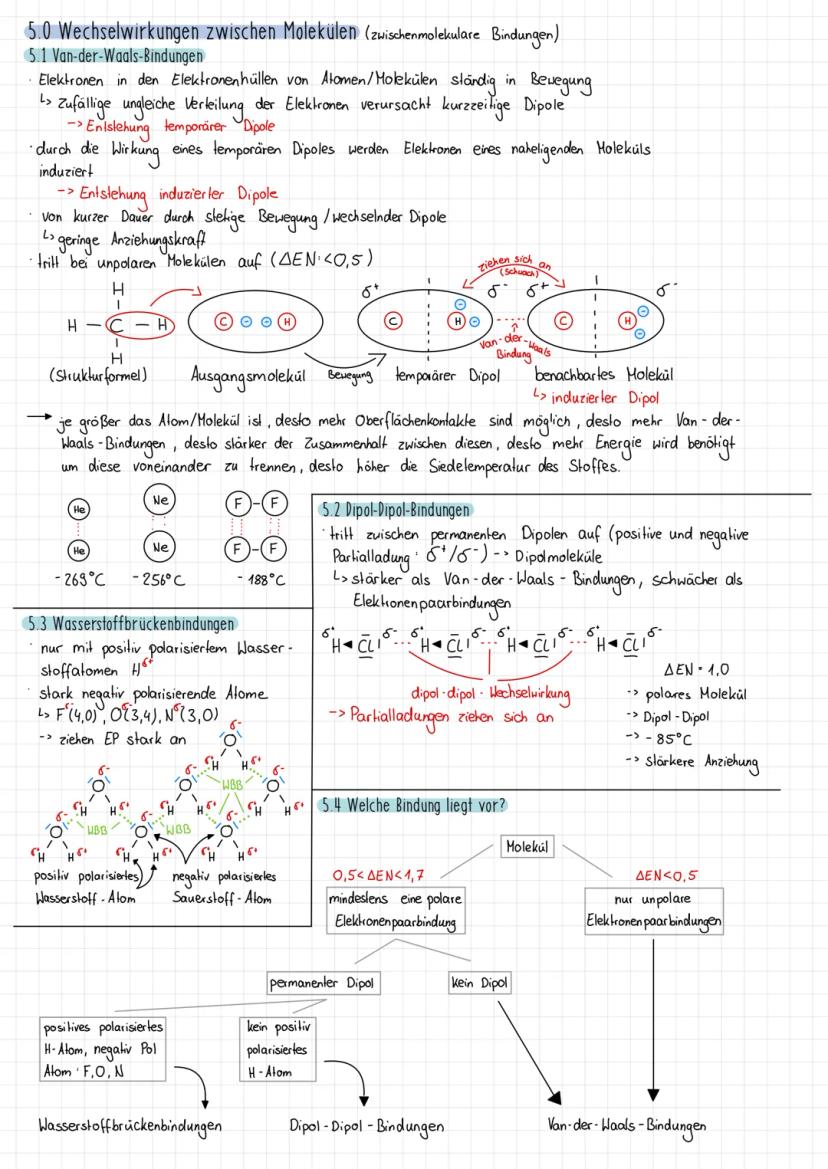 5.0 Wechselwirkungen zwischen Molekülen (zwischenmolekulare Bindungen)
5.1 Van-der-Waals-Bindungen
· Elektronen in den Elektronenhüllen von Atomen/Molekülen ständig in Bewegung
↳ zufällige ungleiche Verteilung der Elektronen verursacht kurzzeitige Dipole
-> Entstehung temporärer Dipole
· durch die Wirkung eines temporären Dipoles werden Elektronen eines naheligenden Moleküls
induziert
-> Entstehung induzierter Dipole
· von kurzer Dauer durch stetige Bewegung / wechselnder Dipole
↳ geringe Anziehungskraft
· tritt bei unpolaren Molekülen auf (ΔEN: <0,5)
ziehen sich an
(schwach)
H
H – C – H
H
C ⊖ ⊖ H
δ+ δ-
C H ⊖ ⊖
Van-der-Waals
Bindung
δ+ δ-
C H ⊖ ⊖
(Strukturformel) Ausgangsmolekül Bewegung temporärer Dipol benachbartes Molekül
↳ induzierter Dipol
→ je größer das Atom/Molekül ist, desto mehr Oberflächenkontakte sind möglich, desto mehr Van-der-
Waals-Bindungen, desto stärker der Zusammenhalt zwischen diesen, desto mehr Energie wird benötigt
um diese voneinander zu trennen, desto höher die Siedetemperatur des Stoffes.
He Ne F–F
He Ne F–F
-269°C -256°C -188°C
5.2 Dipol-Dipol-Bindungen
· tritt zwischen permanenten Dipolen auf (positive und negative
Partialladung: δ+/δ-) --> Dipolmoleküle
↳ stärker als Van-der-Waals-Bindungen, schwächer als
Elektronenpaarbindungen
δ+ H◄Cl δ- ··· δ+ H◄Cl δ- ··· δ+ H◄Cl δ- ··· δ+ H◄Cl δ-
dipol-dipol-Wechselwirkung
-> Partialladungen ziehen sich an
ΔEN = 1,0
-> polares Molekül
-> Dipol-Dipol
-> -85°C
-> stärkere Anziehung
5.3 Wasserstoffbrückenbindungen
· nur mit positiv polarisiertem Wasser-
stoffatomen Hδ+
· stark negativ polarisierende Atome
↳ Fδ-(4,0), Oδ-(3,4), Nδ-(3,0)
-> ziehen EP stark an
δ-
O
δ+ H H δ+
WBB
δ- O δ- O δ- O
δ+ H H δ+ δ+ H H δ+ δ+ H H δ+
WBB WBB
δ- O δ- O δ- O
δ+ H H δ+ δ+ H H δ+ δ+ H H δ+
positiv polarisiertes negativ polarisiertes
Wasserstoff-Atom Sauerstoff-Atom
5.4 Welche Bindung liegt vor?
Molekül
0,5<ΔEN<1,7 ΔEN<0,5
mindestens eine polare
Elektronenpaarbindung
nur unpolare
Elektronenpaarbindungen
permanenter Dipol kein Dipol
positives polarisiertes
H-Atom, negativ Pol
Atom: F,O,N
kein positiv
polarisiertes
H-Atom
Wasserstoffbrückenbindungen Dipol-Dipol-Bindungen Van-der-Waals-Bindungen